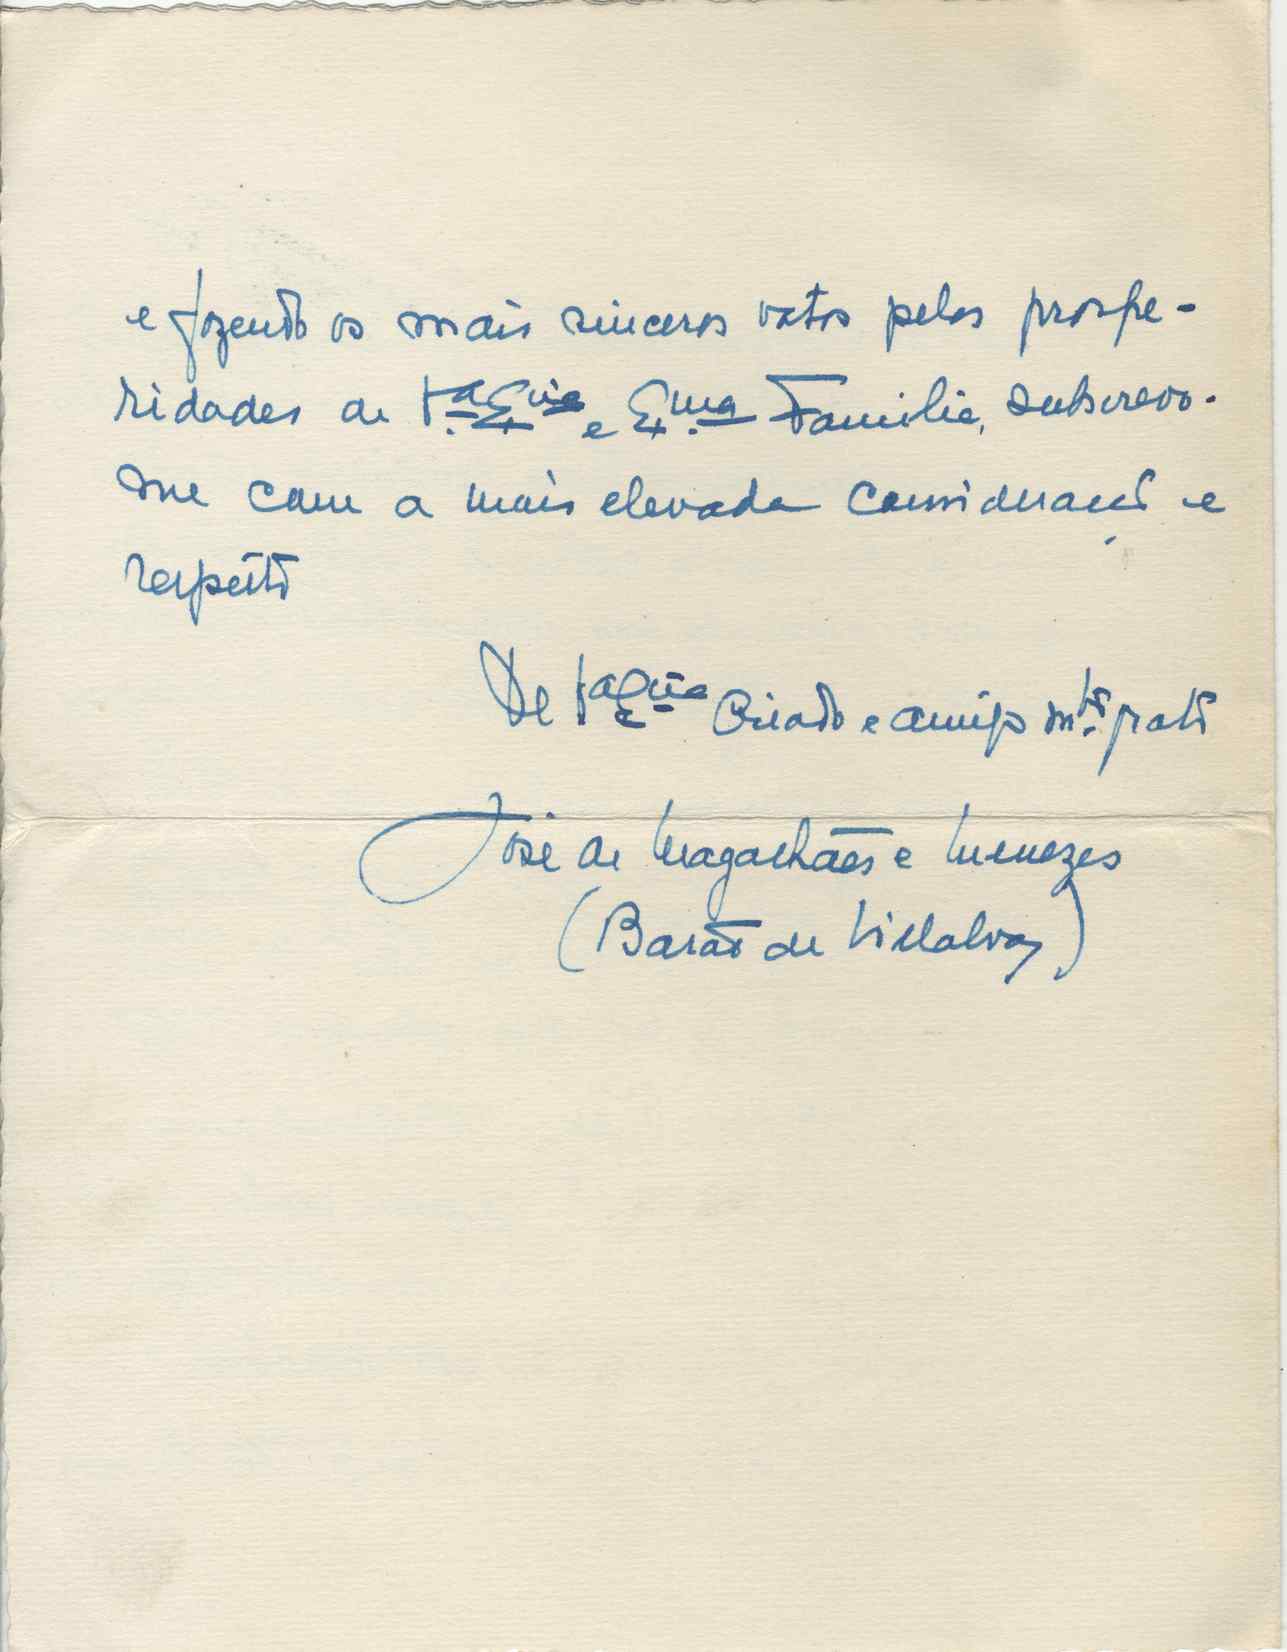 e fazendo os mais sinceros votos pelas prospe-
ridades de V.ª Ex.cia e Ex.ma Familia, subscrevo-
me com a mais elevada consideração e
respeito
De V.ª Ex.cia Criado e amigo m.to grato
José de Magalhães e Menezes
(Barão de Villalva)